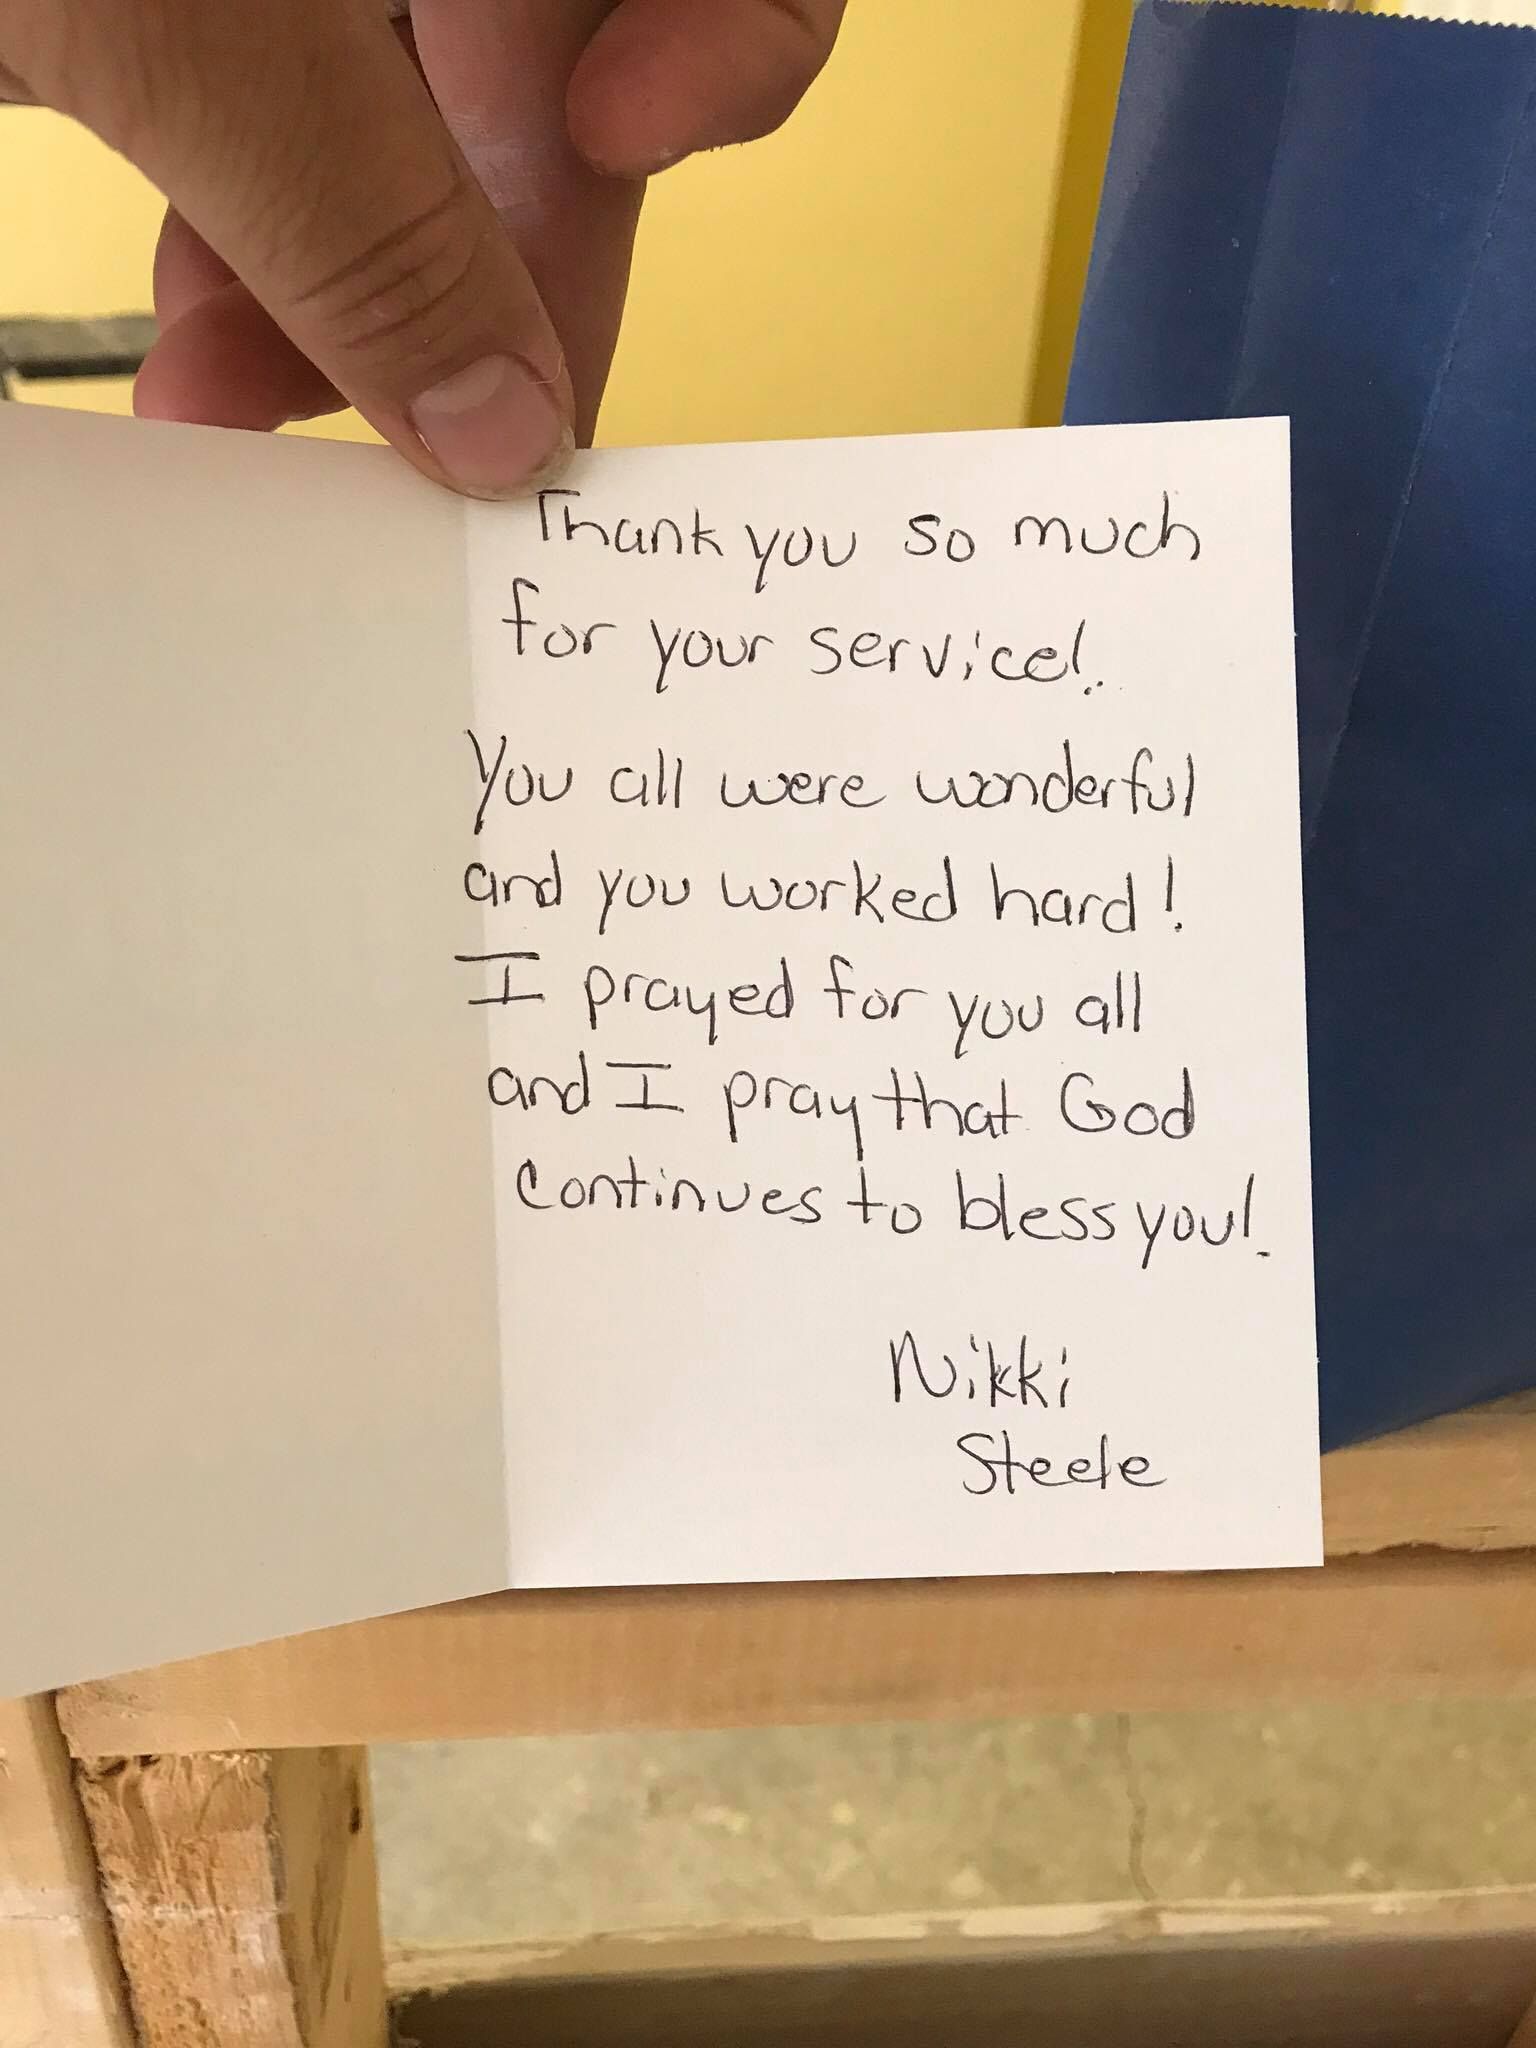 Thank you so much
for your service!
You all were wonderful
and you worked hard!
I prayed for you all
and I pray that God
continues to bless you!
Nikki
Steele